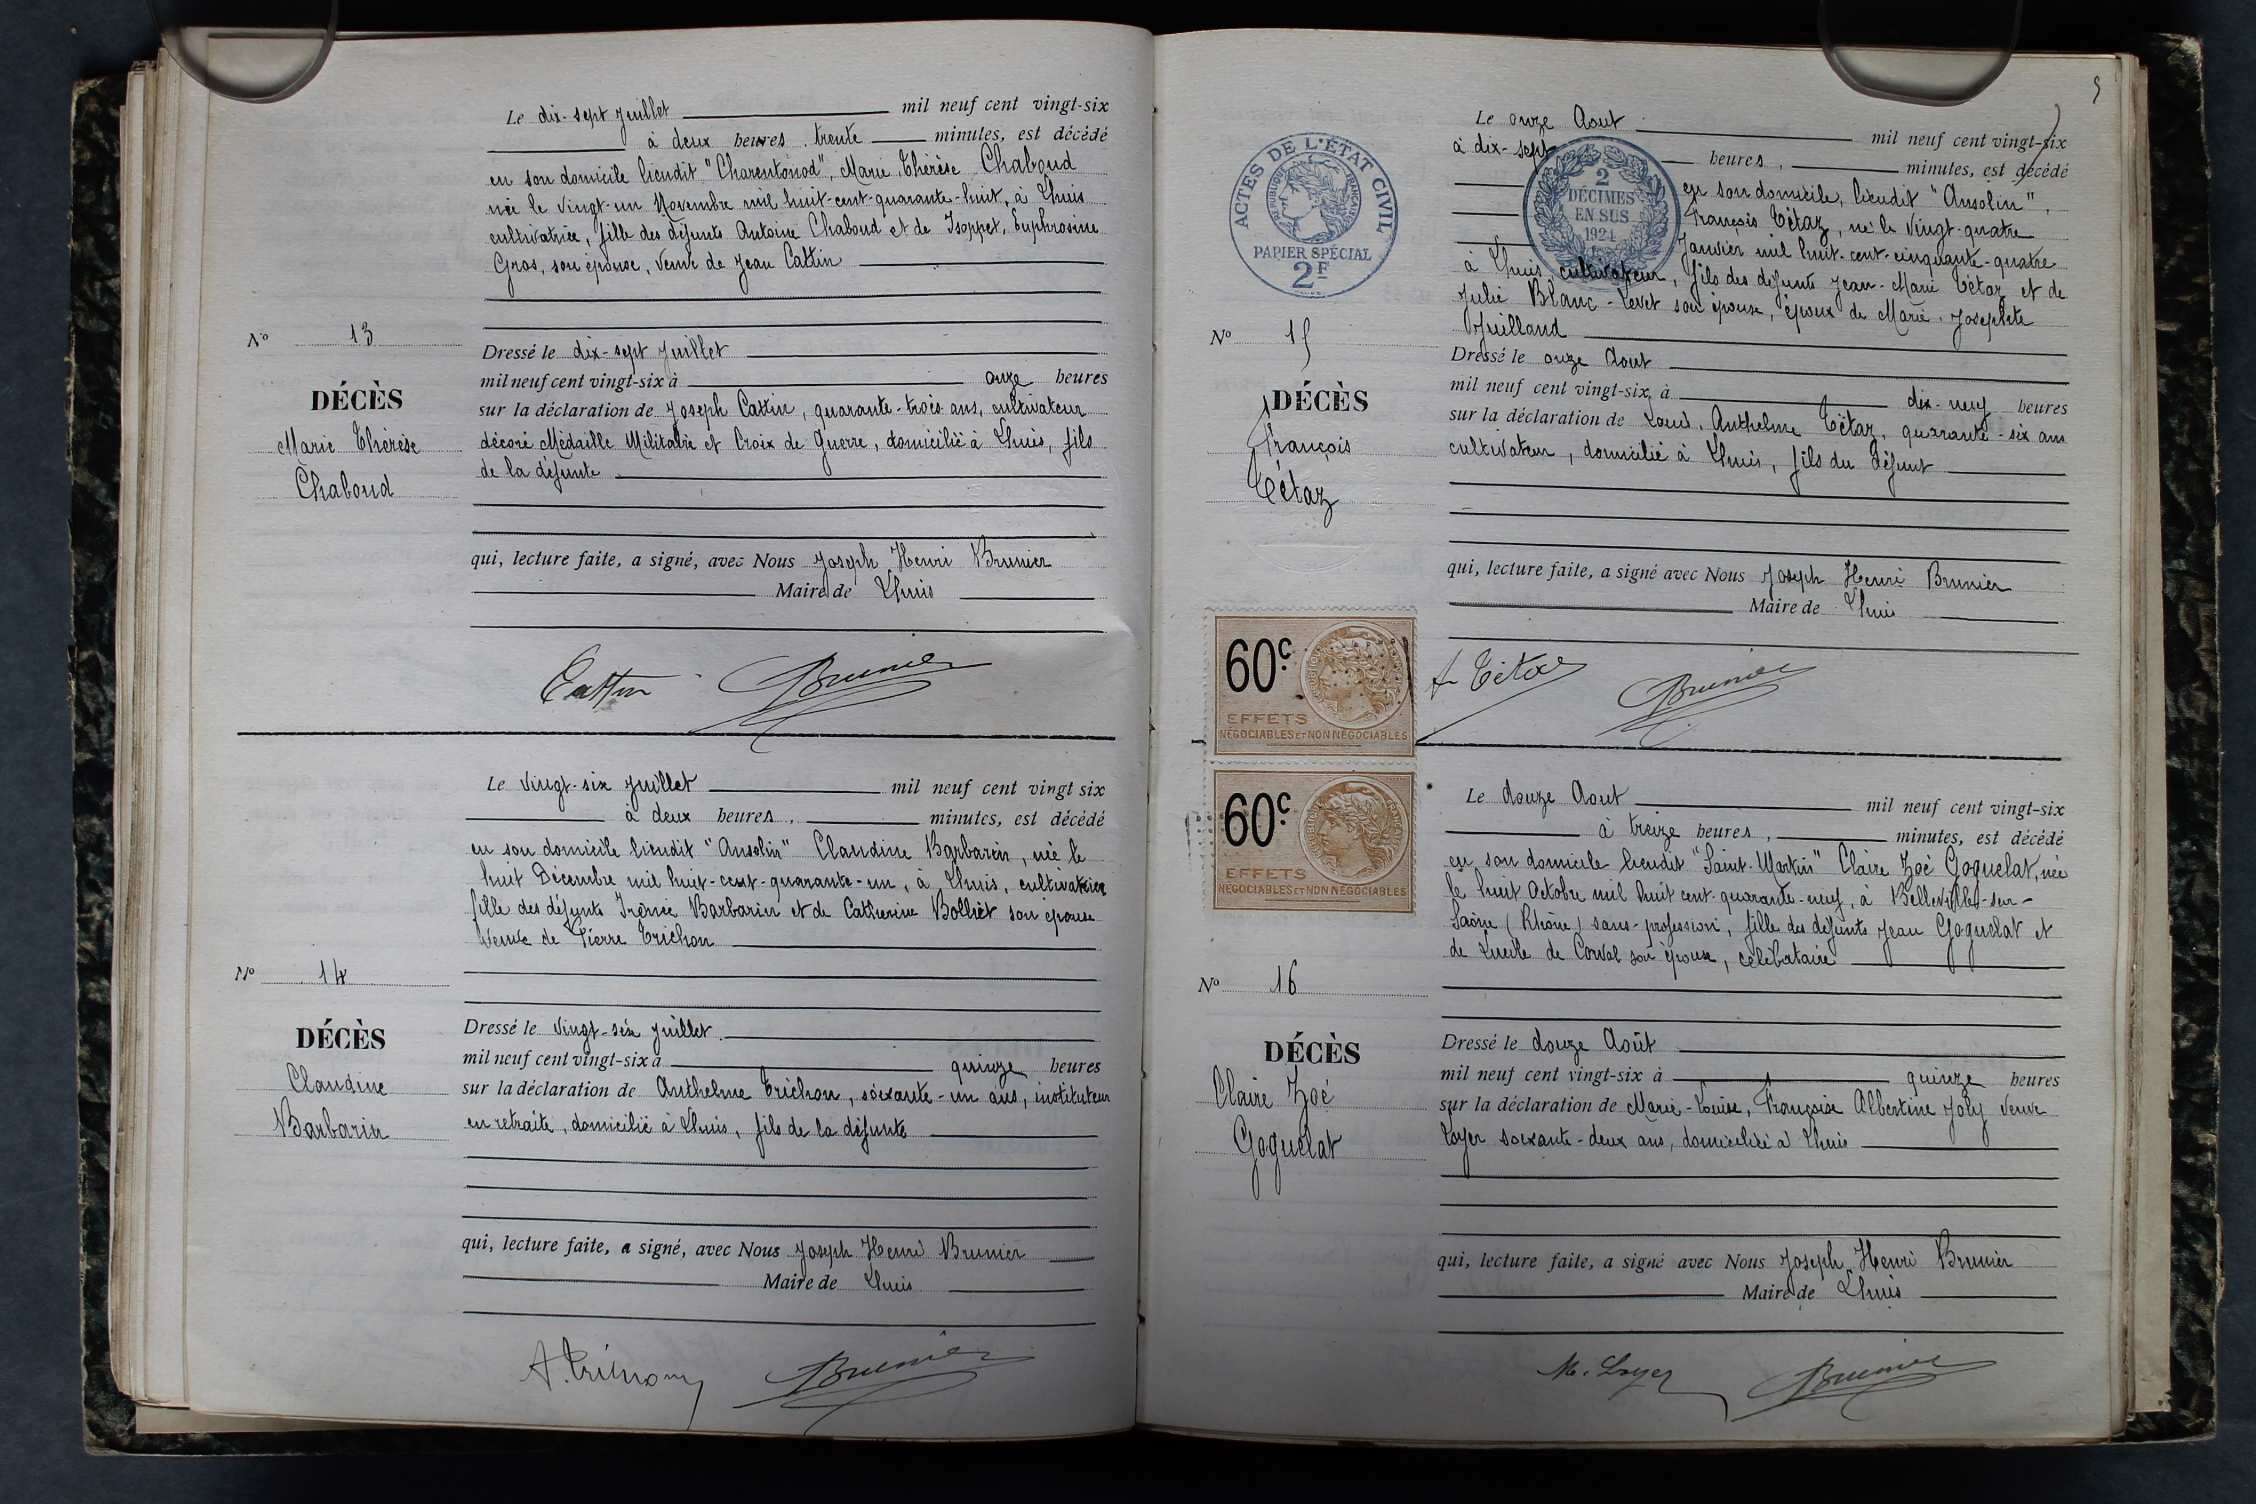 Le dix-sept Juillet mil neuf cent vingt-six
à deux heures trente minutes, est décédé
en son domicile lieudit "Charentonod", Marie Thérèse Chaboud
née le vingt-un Novembre mil huit-cent-quarante-huit, à Lhuis
cultivatrice, fille des défunts Antoine Chaboud et de Euphrosine
Gros, son épouse, veuve de Jean Cattin
No 13
DÉCÈS
Marie Thérèse
Chaboud
Dressé le dix-sept Juillet
mil neuf cent vingt-six à onze heures
sur la déclaration de Joseph Cattin, quarante-trois ans, cultivateur
décoré Médaille Militaire et Croix de Guerre, domicilié à Lhuis, fils
de la défunte
qui, lecture faite, a signé, avec Nous Joseph Henri Brunier
Maire de Lhuis
Cattin Brunier
Le vingt-six Juillet mil neuf cent vingt six
à deux heures, minutes, est décédé
en son domicile lieudit "Ansolin" Claudine Barbarin, née le
huit Décembre mil huit-cent-quarante-un, à Lhuis, cultivatrice
fille des défunts Barbarin et de Catherine Bolliet son épouse
Veuve de Pierre Trichon
No 14
DÉCÈS
Claudine
Barbarin
Dressé le vingt-six Juillet
mil neuf cent vingt-six à quinze heures
sur la déclaration de Anthelme Trichon, soixante-un ans, instituteur
en retraite, domicilié à Lhuis, fils de la défunte
qui, lecture faite, a signé, avec Nous Joseph Henri Brunier
Maire de Lhuis
A. Trichon Brunier
5
ACTES DE L'ÉTAT CIVIL
RÉPUBLIQUE FRANÇAISE
PAPIER SPÉCIAL
2F
2
DÉCIMES
EN SUS
1924
Le onze Aout mil neuf cent vingt-six
à dix-sept heures, minutes, est décédé
en son domicile, lieudit "Ansolin",
François Tétaz, né le Vingt-quatre
Janvier mil huit-cent-cinquante-quatre
à Lhuis, cultivateur, fils des défunts Jean-Marie Tétaz et de
Julie Blanc-Levet son épouse, époux de Marie-Josephte
Vuilland
No 15
DÉCÈS
François
Tétaz
Dressé le onze Aout
mil neuf cent vingt-six, à dix-neuf heures
sur la déclaration de Louis, Anthelme Tétaz, quarante-six ans
cultivateur, domicilié à Lhuis, fils du défunt
qui, lecture faite, a signé avec Nous Joseph Henri Brunier
Maire de Lhuis
Tétaz Brunier
60c
EFFETS
NÉGOCIABLES ET NON NÉGOCIABLES
60c
EFFETS
NÉGOCIABLES ET NON NÉGOCIABLES
Le douze Aout mil neuf cent vingt-six
à treize heures, minutes, est décédé
en son domicile lieudit "Saint-Martin" Claire Zoé Goguelat, née
le huit Octobre mil huit cent-quarante-neuf, à Belleville-sur-
Saône (Rhône) sans-profession, fille des défunts Jean Goguelat et
de Lucile de Corval son épouse, célibataire
No 16
DÉCÈS
Claire Zoé
Goguelat
Dressé le douze Août
mil neuf cent vingt-six à quinze heures
sur la déclaration de Marie-Louise, Françoise Albertine Joly veuve
Loyer soixante-deux ans, domiciliée à Lhuis
qui, lecture faite, a signé avec Nous Joseph Henri Brunier
Maire de Lhuis
M. Loyer Brunier